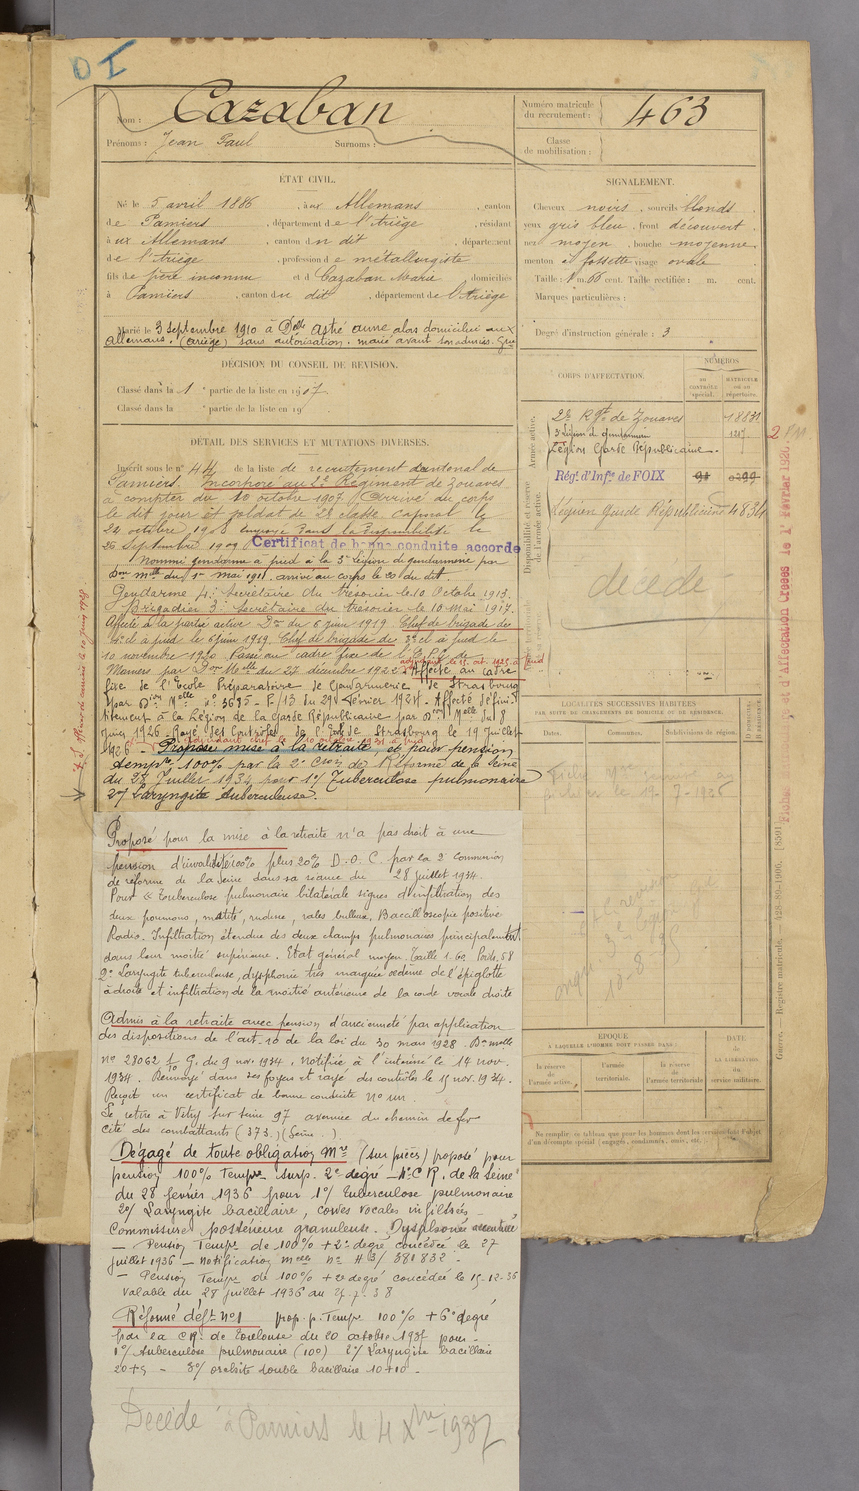 O I
Nom : Cazaban
Prénoms : Jean Paul Surnoms :
Numéro matricule du recrutement : 463
Classe de mobilisation :
ÉTAT CIVIL.
Né le 5 avril 1886, à ux Allemans, canton
de Pamiers, département de l'Ariège, résidant
à ux Allemans, canton du dit, département
de l'Ariège, profession de métallurgiste
fils de père inconnu et de Cazaban Marie, domiciliés
à Pamiers, canton du dit, département de l'Ariège
Marié le 3 septembre 1910 à Delle Astié Anne alors domiciliée aux
Allemans. (Ariège) sans autorisation. marié avant son admis.
SIGNALEMENT.
Cheveux noirs, sourcils blonds
yeux gris bleu, front découvert
nez moyen, bouche moyenne
menton à fossette visage ovale
Taille : 1 m. 66 cent. Taille rectifiée : m. cent.
Marques particulières :
Degré d'instruction générale : 3
DÉCISION DU CONSEIL DE REVISION.
Classé dans la 1e partie de la liste en 1907.
Classé dans la e partie de la liste en 19
DÉTAIL DES SERVICES ET MUTATIONS DIVERSES.
Inscrit sous le n° 44 de la liste de recrutement cantonal de
Pamiers. Incorporé au 2e Régiment de Zouaves
à compter du 10 octobre 1907. Arrivé au corps
le dit jour et soldat de 2e classe. Caporal le
24 octobre 1908 envoyé dans la disponibilité le
25 Septembre 1909 Certificat de bonne conduite accordé
Nommé gendarme à pied à la 3e légion de gendarmerie par
Don mlle du 1er mai 1911. arrivé au corps le 20 du dit.
Gendarme 4e secrétaire du trésorier le 10 Octobre 1913.
Brigadier 3e secrétaire du trésorier le 10 Mai 1917.
Affecté à la partie active Don du 6 juin 1919. Chef de brigade de
4e cl à pied le 6 juin 1919. Chef de brigade de 3e cl à pied le
10 novembre 1920. Passé au cadre fixe de l'E.P.G. de
Mamers par Don Melle du 27 décembre 1922. Affecté au cadre
adjudant le 15. oct. 1925 à pied
fixe de l'École Préparatoire de Gendarmerie de Strasbourg
par Don Melle n° 3695 - F/13 du 29 février 1924. Affecté défini-
tivement à la Légion de la Garde Républicaine par Don Melle du 8
juin 1926. Rayé des Contrôles de l'Ecole de Strasbourg le 19 Juillet
1926 - Proposé mise à la retraite, et pour pension
temp. 100% par la 2e Cion de Réforme de la Seine
du 27 Juillet 1934 pour 1°/ Tuberculose pulmonaire
2°/ Laryngite tuberculeuse.
CORPS D'AFFECTATION.
NUMÉROS
AU CONTRÔLE spécial.
MATRICULE OU AU répertoire.
Armée active.
2e Rgt de Zouaves 18831
3e Légion de gendarmerie 1217
Légion Garde Républicaine.
Disponibilité et réserve de l'armée active.
Régt d'Infie de FOIX
Légion Garde Républicaine 4834
décédé
LOCALITÉS SUCCESSIVES HABITÉES
PAR SUITE DE CHANGEMENTS DE DOMICILE OU DE RÉSIDENCE.
Dates. Communes. Subdivisions de région.
ÉPOQUE
À LAQUELLE L'HOMME DOIT PASSER DANS :
la réserve de l'armée active.
l'armée territoriale.
la réserve de l'armée territoriale
DATE de LA LIBÉRATION du service militaire.
Ne remplir ce tableau que pour les hommes dont les services font l'objet
d'un décompte spécial (engagés, condamnés, omis, etc.
Guerre. — Registre matricule. — 428-80-1906. [8591]
Proposé pour la mise à la retraite n'a pas droit à une
pension d'invalidité 100% plus 20% D.O.C. par la 2e commission
de réforme de la Seine dans sa séance du 28 juillet 1934.
Pour « Tuberculose pulmonaire bilatérale signes d'infiltration des
deux poumons, matité, rudesse, rales bulleux, Bacilloscopie positive
Radio. Infiltration étendue des deux champs pulmonaires principalement
dans leur moitié supérieure. Etat général moyen. Taille 1.69. Poids. 58
2° Laryngite tuberculeuse, dysphonie très marquée oedème de l'épiglotte
à droite et infiltration de la moitié antérieure de la corde vocale droite
Admis à la retraite avec pension d'ancienneté par application
des dispositions de l'art. 10 de la loi du 30 mars 1928. Don melle
n° 28062 1/10 G. du 9 nov. 1934. Notifiée à l'intéressé le 14 nov.
1934. Renvoyé dans ses foyers et rayé des contrôles le 15 nov. 1934.
Reçoit un certificat de bonne conduite n° un.
Se retire à Vitry sur Seine 97 avenue du chemin de fer
cité des combattants (373.) (Seine.)
Dégagé de toute obligation Mre (sur pièces) proposé pour
pension 100% Tempre surp. 2e degré - C R. de la Seine
du 28 février 1936 pour 1°/ Tuberculose pulmonaire
2°/ Laryngite bacillaire, cordes vocales infiltrées -
Commissure postérieure granuleuse. Dysphonie accentuée
- Pension Tempre de 100% + 2e degré concédée le 27
juillet 1936 - Notification melle n° 381832 -
- Pension Tempre de 100% + 2e degré concédée le 15-12-36
valable du 28 juillet 1936 au 27.7.38
Réformé déft n° 1 prop. p. Tempre 100% + 6e degré
par la CR. de Toulouse du 20 octobre 1937 pour -
1°/ tuberculose pulmonaire (100) 2°/ Laryngite bacillaire
20+5 - 3°/ orchite double bacillaire 10+10 -
Décédé à Pamiers le 4 Xbre 1937